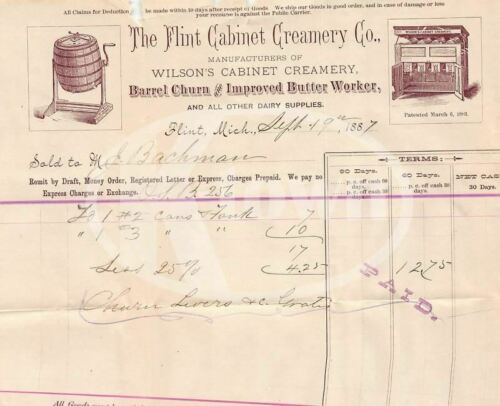 All Claims for Deduction be made within 10 days after receipt of Goods We ship our Goods in good order, and in case of damage or loss
your recourse is against the Public Carrier.
The Flint Cabinet Creamery Co.,
MANUFACTURERS OF
WILSON'S CABINET CREAMERY,
Barrel Churn and Improved Butter Worker,
AND ALL OTHER DAIRY SUPPLIES.
Patented March 6, 1883.
Flint, Mich., Sept 19th 1887
Sold to M Bachman
TERMS:
Remit by Draft, Money Order, Registered Letter or Express, Charges Prepaid. We pay no
Express Charges or Exchange. 256
60 Days.
p. c. off cash 30
days.
60 Days.
p. c. off cash
days.
NET CAS
30 Days.
To 1 #2 cans & Tank 7
" 1 #3 " " 10
17
Less 25% 4.25 12.75
PAID.
Churn Levers &c Gratis
All Goods